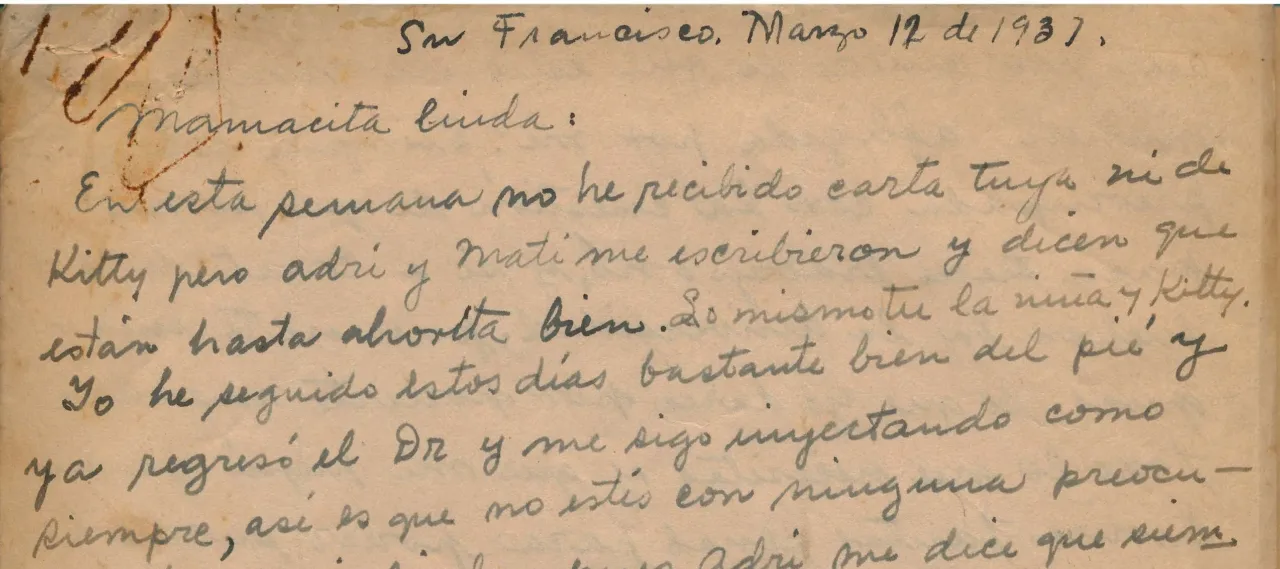 Sn Francisco. Marzo 12 de 1931.
Mamacita linda:
En esta semana no he recibido carta tuya ni de
Kitty pero adri y Mati me escribieron y dicen que
están hasta ahorita bien. Lo mismo tu la niña y Kitty.
Yo he seguido estos días bastante bien del pié y
ya regresó el Dr y me sigo inyectando como
siempre, asi es que no estés con ninguna preocu-
Adri me dice que siem